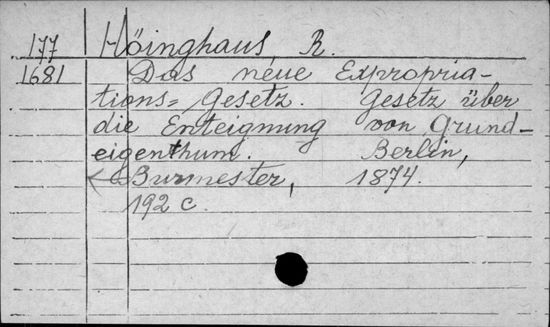 177 Höinghaus, R.
1681 Das neue Expropria-
tions= Gesetz. Gesetz über
die Enteignung von Grund-
eigenthum. Berlin,
Burmester, 1874.
192 c.